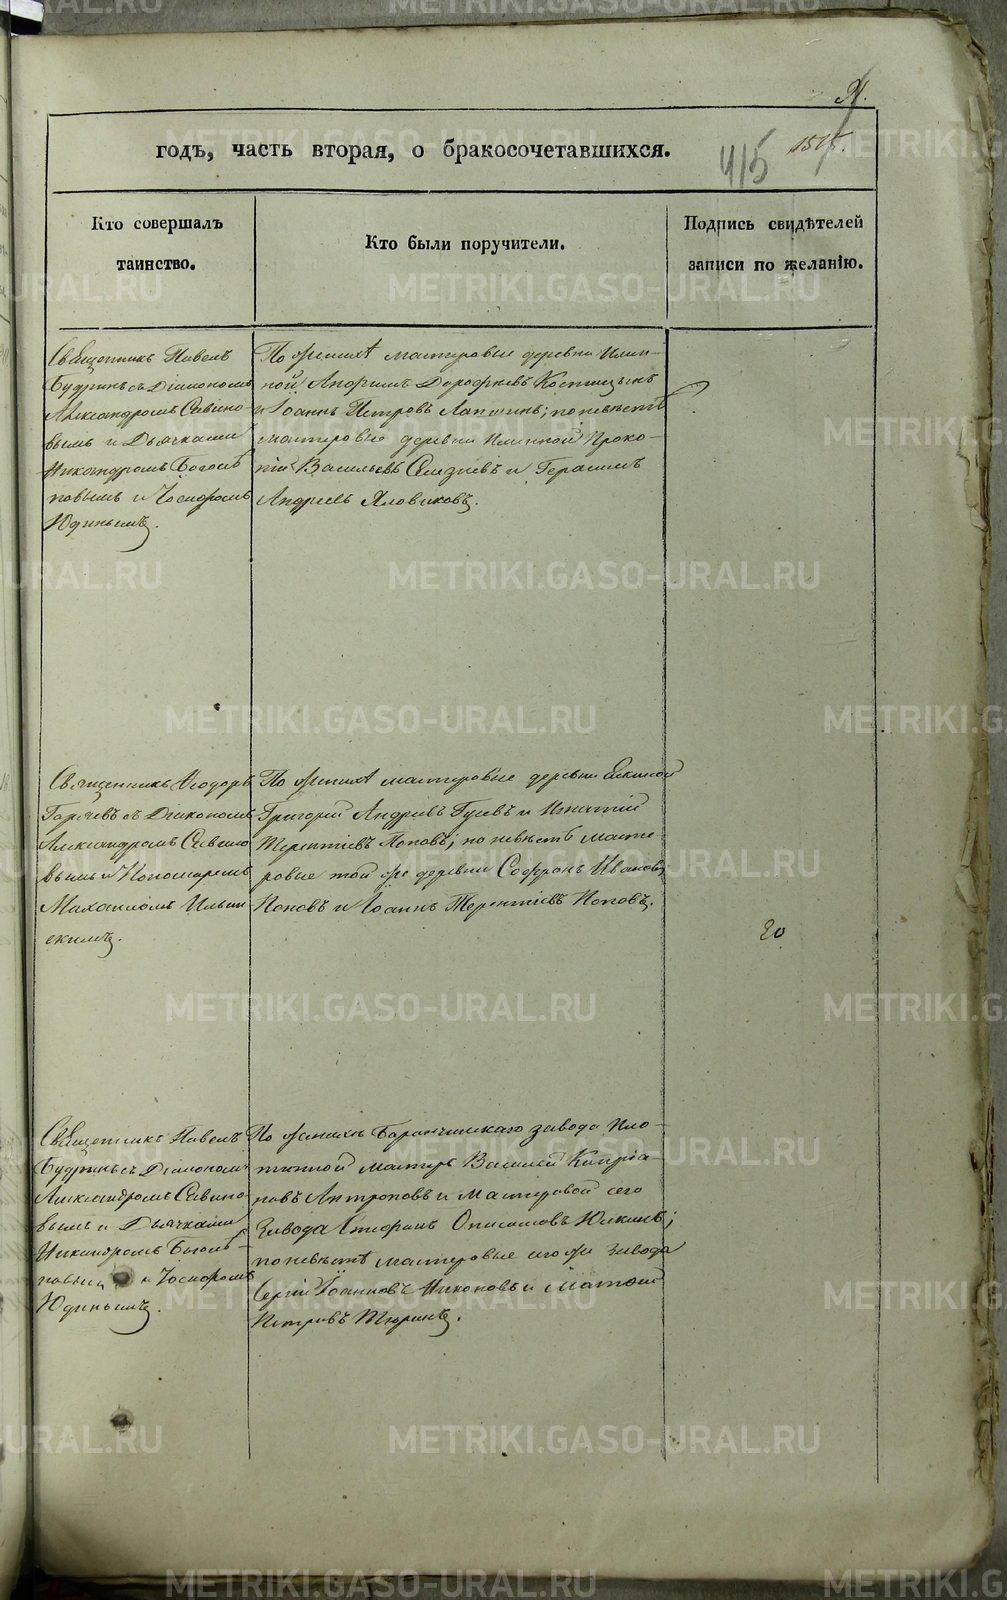 годъ, часть вторая, о бракосочетавшихся.
415
Кто совершалъ
таинство.
Кто были поручители.
Подпись свидѣтелей
записи по желанію.
Священникъ Павелъ
Будринъ съ Діакономъ
Александромъ Савино-
вымъ и Дьячками
Никандромъ Боголя-
повымъ и Іосифомъ
Юдинымъ.
По женихѣ мастеровые деревни
Дорофеевъ
и Іоаннъ Петровъ Лапшинъ; по невѣстѣ
мастеровые деревни Проко-
пій Васильевъ Селезневъ и Герасимъ
Андреевъ Яловиковъ.
Священникъ Ѳеодоръ
съ Діакономъ
Александромъ Савино
вымъ и Пономаремъ
Михаиломъ Ильин
скимъ.
По женихѣ мастеровые деревни
Григорій Андреевъ Гусевъ и Игнатій
Терентіевъ Поповъ; по невѣстѣ масте-
ровые той же деревни Софронъ Ивановъ
Поповъ и Іоаннъ Терентіевъ Поповъ.
20
Священникъ Павелъ
Будринъ съ Діакономъ
Александромъ Савино-
вымъ и Дьячками
Никандромъ
повым и Іосифомъ
Юдинымъ.
По женихѣ Баранчинскаго завода Пло-
тинной мастеръ Василей Кипріа-
новъ Антроповъ и Мастеровой сего
завода Стефанъ
по невѣстѣ мастеровые того же завода
Сергій Іоанновъ Никоновъ и Матвей
Петровъ Тюринъ.
METRIKI.GASO-URAL.RU